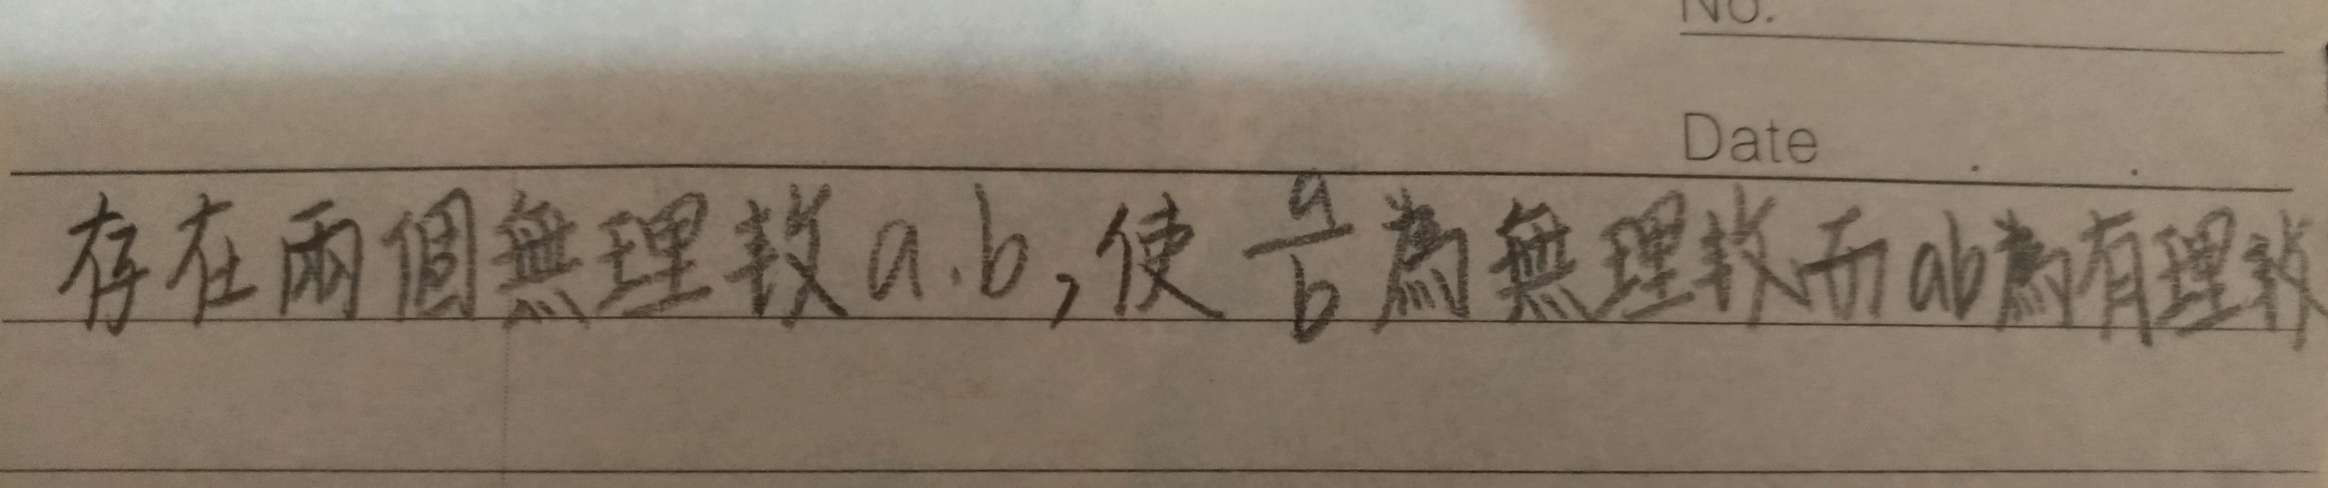 No.
Date
存在兩個無理數a.b,使a/b為無理數而ab為有理數